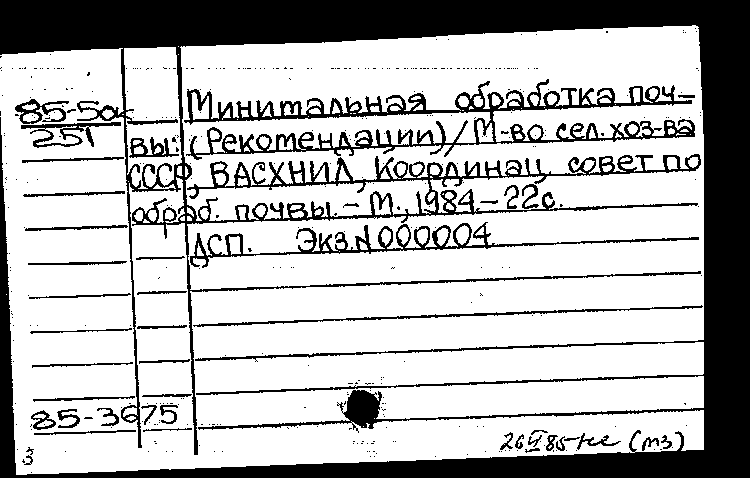 85-5ок Минимальная обработка поч-
251 вы: (Рекомендации)/М-во сел. хоз-ва
СССР, ВАСХНИЛ, Координац. совет по
обраб. почвы. - М., 1984 - 22с.
ДСП. Экз.N000004
85-3675
26 VI 85 (мз)
3